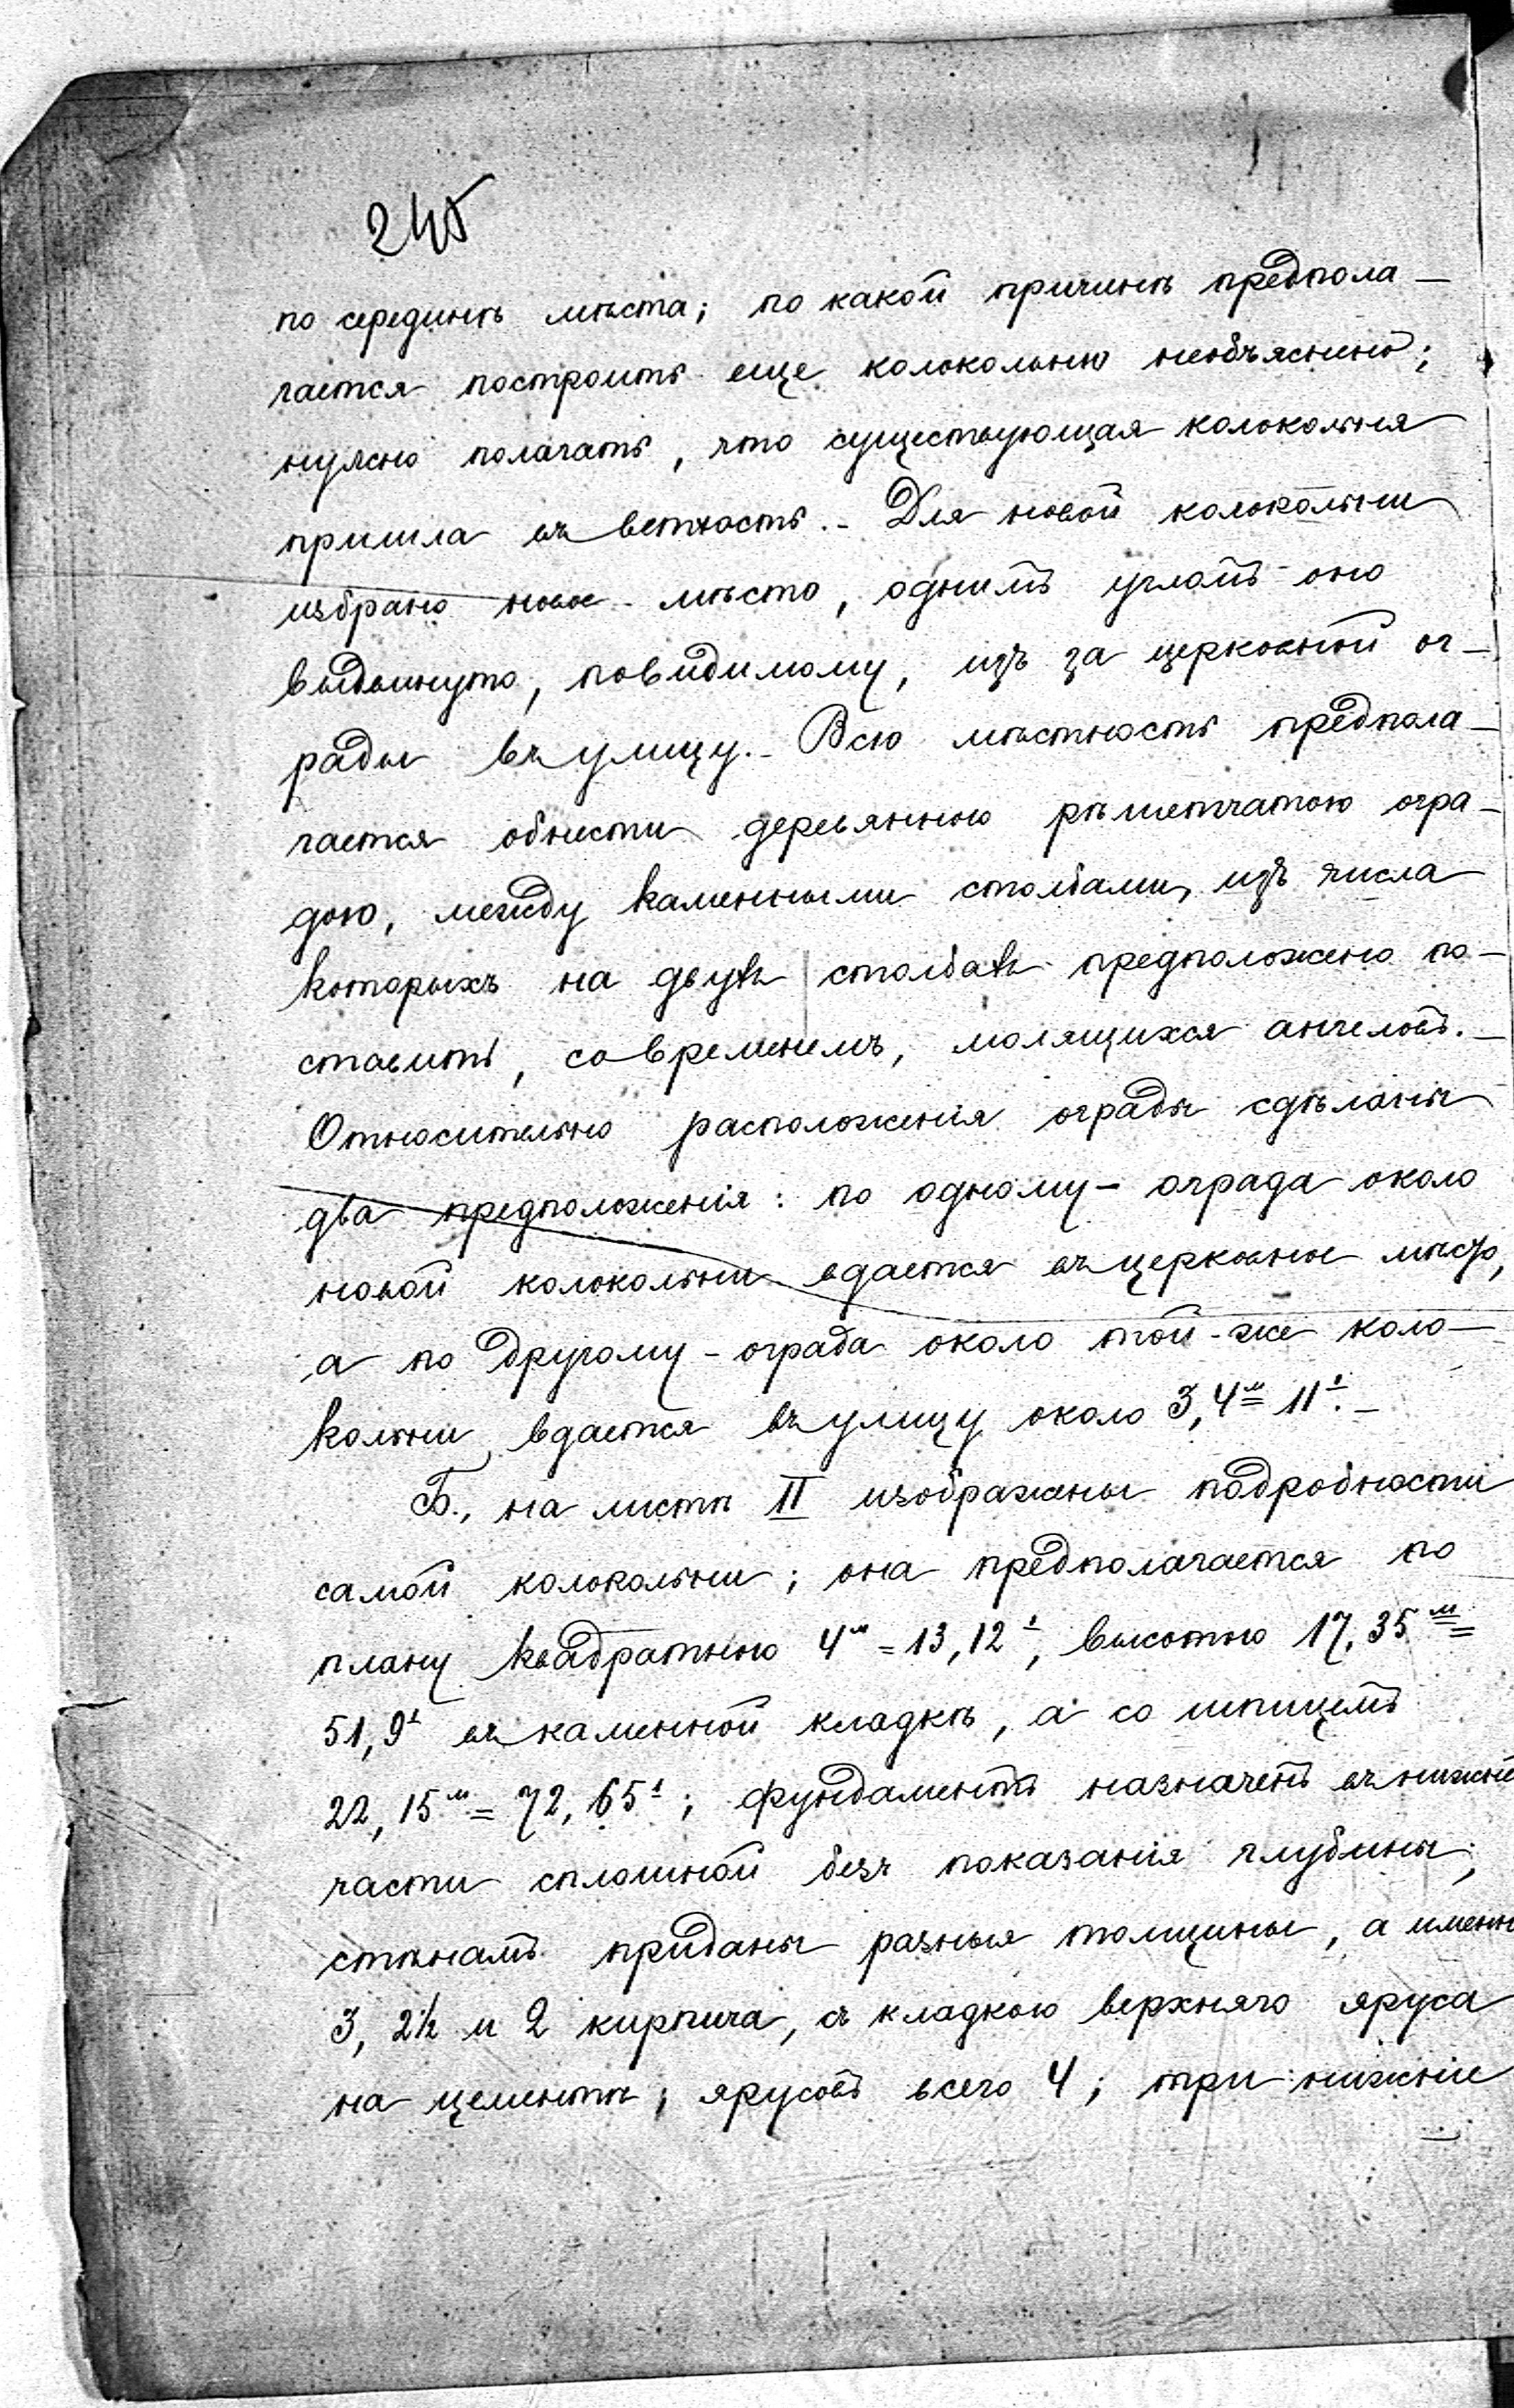 245
по серединѣ мѣста; по какой причинѣ предпола-
гается построить еще колокольню необъяснено;
нужно полагать, что существующая колокольня
пришла въ ветхость. - Для новой колокольни
избрано новое мѣсто, однимъ угломъ оно
выдвинуто, повидимому, изъ за церковной ог-
рады въ улицу. - Всю мѣстность предпола-
гается обнести деревянною рѣшетчатою огра-
дою, между каменными столбами, изъ числа
которыхъ на двухъ столбахъ предположено по-
ставить, современемъ, молящихся ангеловъ. -
Относительно расположенія ограды сдѣланы
два предположенія: по одному - ограда около
новой колокольни вдается въ церковное мѣсто,
а по другому - ограда около той-же коло-
кольни вдается въ улицу около 3,4м = 11'. -
Б., на листѣ II изображены подробности
самой колокольни; она предполагается по
плану квадратною 4м = 13,12', высотою 17,35м =
51,9' въ каменной кладкѣ, а со шпицемъ
22,15м = 72,65'; фундаментъ назначенъ въ нижней
части сплошной безъ показанія глубины;
стѣнамъ приданы разныя толщины, а именно
3, 2½ и 2 кирпича, съ кладкою верхняго яруса
на цементѣ; ярусовъ всего 4; три нижніе